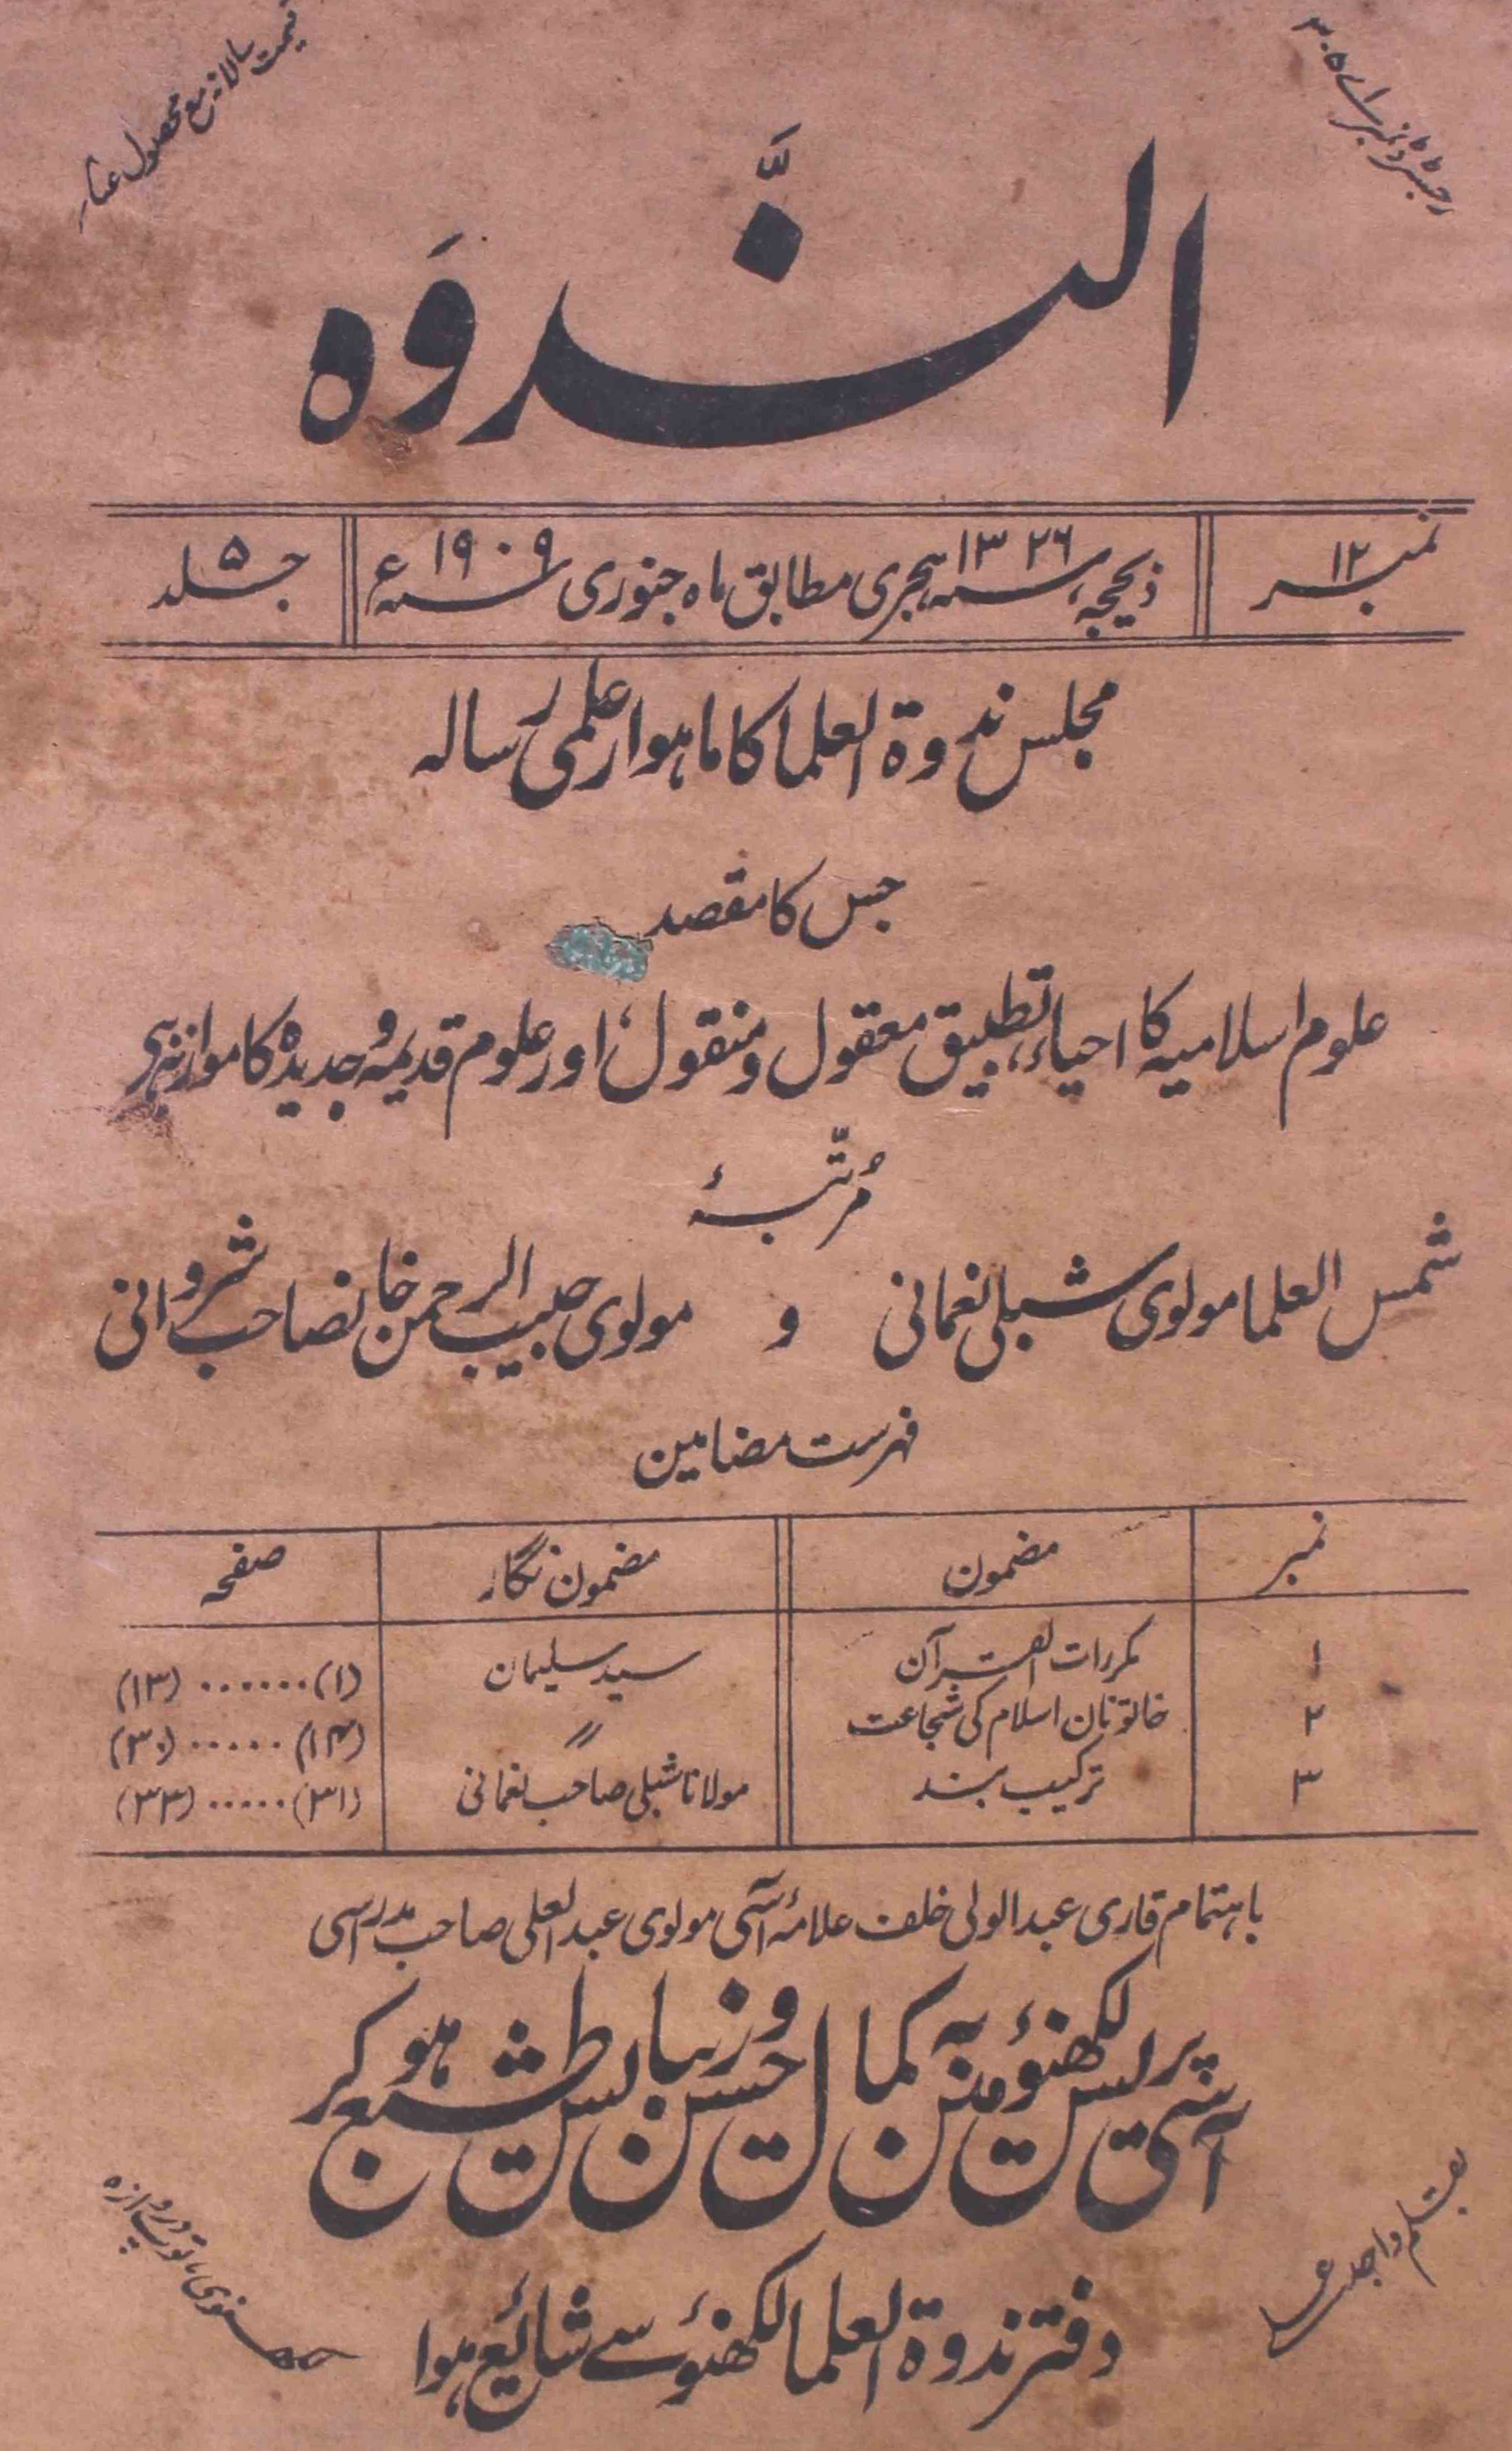 رجسٹرڈ نمبر اے ۳۰۵
قیمت سالانہ مع محصول
النَّدوَہ
نمبر ۱۲
ذیحجہ سنہ ۱۳۲۶ ہجری مطابق ماہ جنوری سنہ ۱۹۰۹ء
جلد ۵
مجلس ندوۃ العلما کا ماہوار علمی رسالہ
جس کا مقصد
علوم اسلامیہ کا احیاء، تطبیق معقول و منقول، اور علوم قدیمہ و جدیدہ کا موازنہ ہی
مُرتّبہٗ
شمس العلما مولوی شبلی نعمانی و مولوی حبیب الرحمن خانصاحب شروانی
فہرست مضامین
نمبر مضمون مضمون نگار صفحہ
۱ مکررات القرآن سید سلیمان (۱) ...... (۱۳)
۲ خاتونان اسلام کی شجاعت 〃 (۱۴) ..... (۳۰)
۳ ترکیب بند مولانا شبلی صاحب نعمانی (۳۱) ..... (۳۳)
باہتمام قاری عبدالولی خلف علامۂ آسی مولوی عبدالعلی صاحب مدراسی
آسی پریس لکھنؤ مین بہ کمال حسن و زیبایش طبع ہو کر
دفتر ندوۃ العلما لکھنؤ سے شائع ہوا
بقلم واجد علی